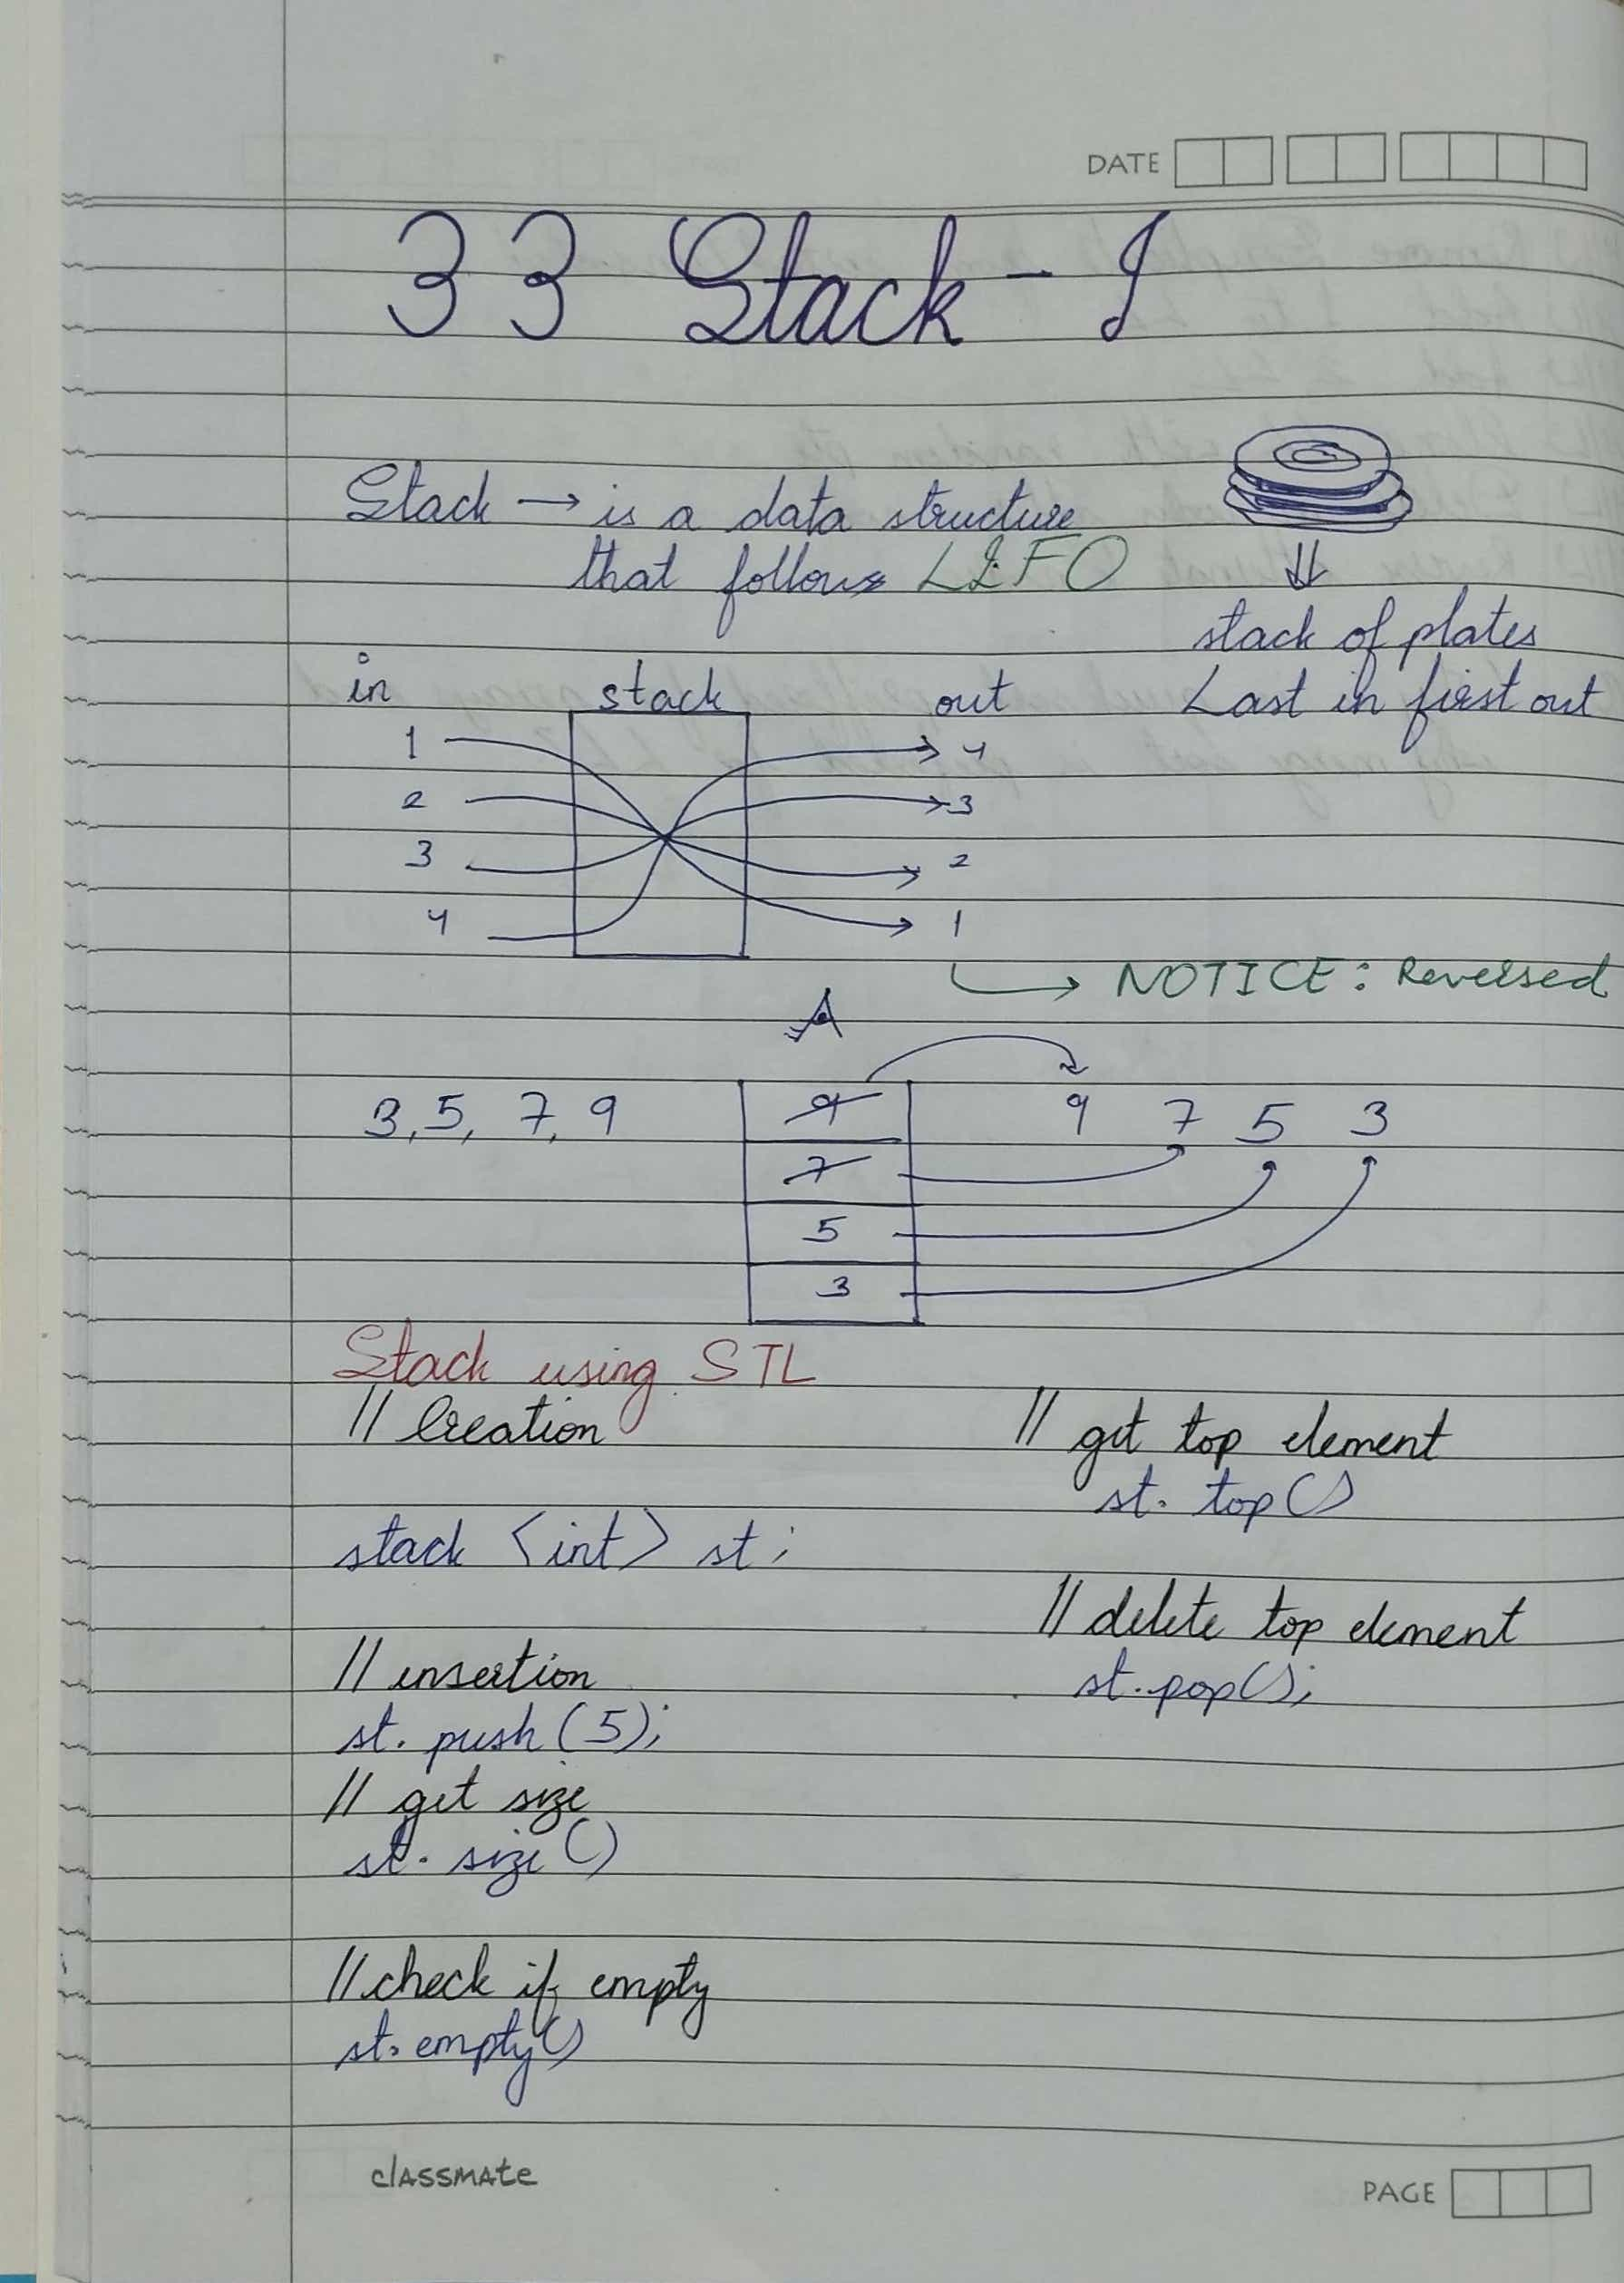 DATE
33 Stack - I
Stack → is a data structure
that follows LIFO
stack of plates
Last in first out
in stack out
1 4
2 3
3 2
4 1
NOTICE: Reversed
3, 5, 7, 9
9
7
5
3
9 7 5 3
Stack using STL
// Creation
stack <int> st;
// insertion
st. push (5);
// get size
st. size ()
// check if empty
st. empty()
// get top element
st. top ()
// delete top element
st. pop();
classmate
PAGE